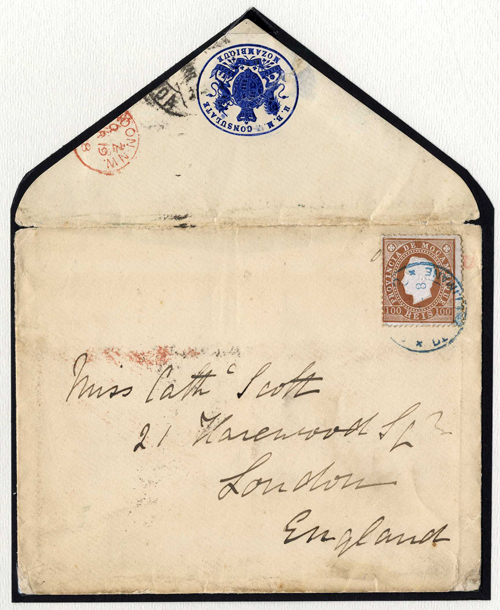 H.B.M. CONSULATE
MOZAMBIQUE
ON.N.W.
19
PROVINCIA DE MOÇAMBIQUE
100 REIS 100
Miss Cathᵉ Scott
21 Harewood Sqʳ
London
England